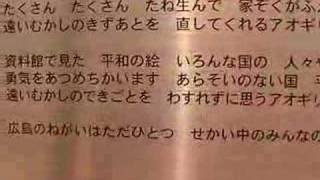 たくさん たくさん たね生んで 家ぞくがふ
遠いむかしのきずあとを 直してくれるアオギリ
資料館で見た 平和の絵 いろんな国の 人々
勇気をあつめちかいます あらそいのない国 平
遠いむかしのできごとを わすれずに思うアオギリ
広島のねがいはただひとつ せかい中のみんなの